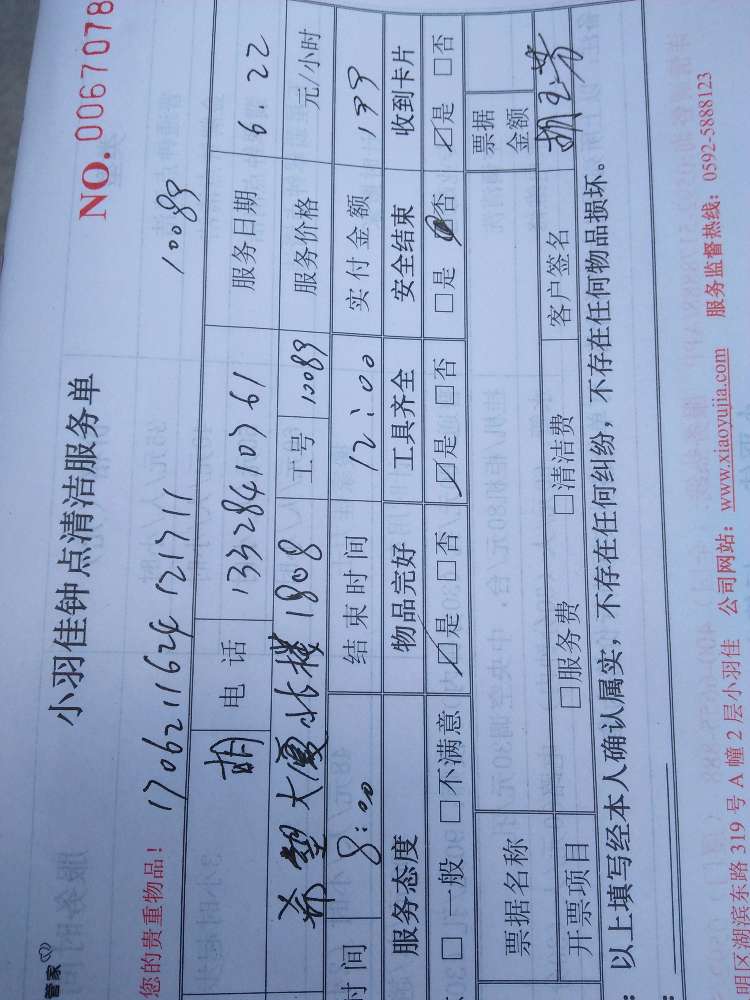 管家
小羽佳钟点清洁服务单
NO. 0067078
您的贵重物品! 170621162412171110089
胡 电话 13328410761 服务日期 6.22
希望大厦北楼1808 工号 10089 服务价格 元/小时
时间 8:00 结束时间 12:00 实付金额 199
服务态度 物品完好 工具齐全 安全结束 收到卡片
□ 一般 □不满意 ☑是 □否 ☑是 □否 □是 ☑否 ☑是 □否
票据名称 票据金额
开票项目 □服务费 □清洁费 客户签名
以上填写经本人确认属实,不存在任何纠纷,不存在任何物品损坏。
明区湖滨东路 319 号 A 幢 2 层小羽佳 公司网站: www.xiaoyujia.com 服务监督热线: 0592-5888123